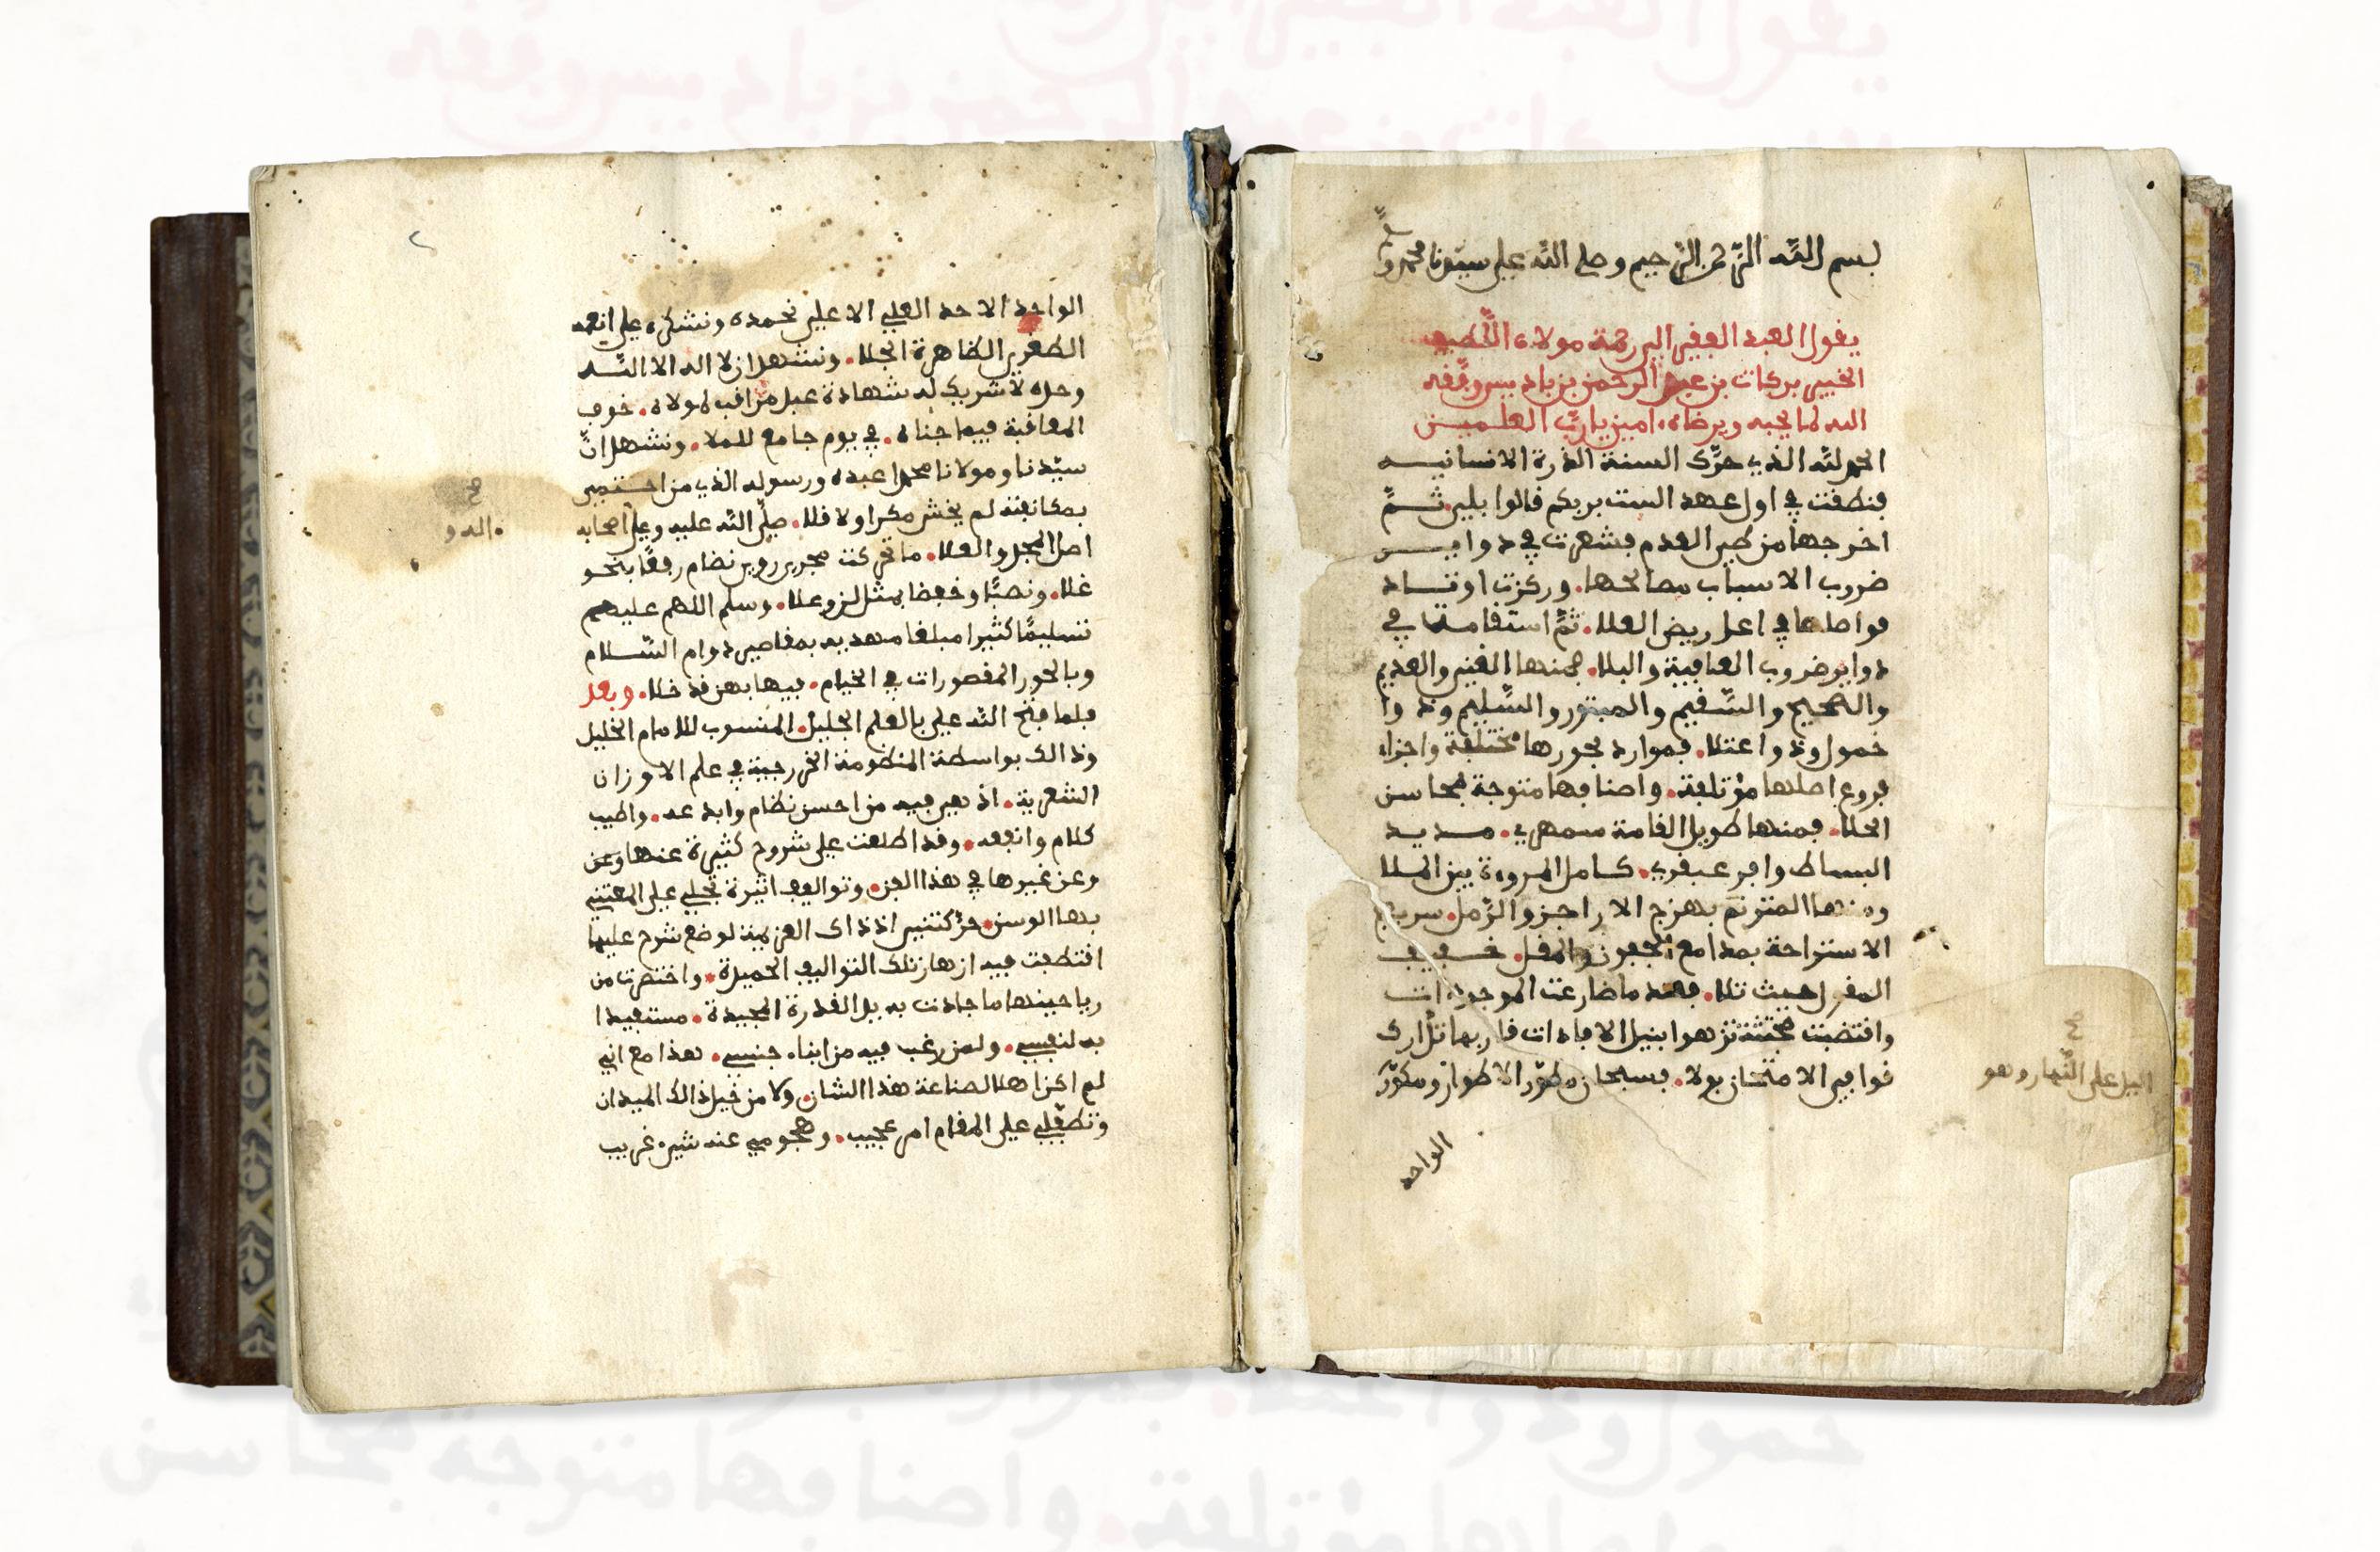 بسم الله الرحمن الرحيم وصلى الله على سيدنا محمد و
يقول العبد الفقير الى رحمة مولاه اللطيف
الخبير بركات بن عبد الرحمن بن باديس وفقه
الله لما يحبه ويرضاه امين يا رب العلمين
الحمد لله الذي حرّك السنة الذرة الانسانيه
فنطقت في اول عهد الست بربكم قالوا بلى ثمّ
اخرجها من طي العدم فشعرت في دواير
ضروب الاسباب مصالحها. وركزت اوتاد
فواصلها في اعاريض العلا. ثمّ استقامت في
دواير ضروب العافية والبلا. فمنها الغني والعديم
والصحيح والسّقيم والمبتور والسّليم وذوا
خمول وذوا اعتلا. فموارد بحورها مختلفة واجزاء
فروع اصلها مؤتلفة. واصنافها متوجة بمحاسن
الحلا. فمنها طويل القامة سمهري. مديد
البساط وافر عبقري. كامل المروءة بين الملا
ومنها المترنم بهزج الاراجز والرّمل. سريع
الاستراحة بمدامع الجفون والمقل. خفيف
المقر حيث تلا. فعند ما ضارعت الموجودات
واقتضبت مجتثة تزهوا بنيل الافادات قاربها تدارك
قوافي الامتنان بولا. فسبحان مطوّر الاطوار ومكوّر
صح
اليل على النّهار وهو
الواحد
الواحد الاحد العلي الاعلى نحمده ونشكره على انعمه
الظاهرة الجلا. ونشهد ان لا اله الا الله
وحده لا شريك له شهادة عبد مراقب لمولاه. خوف
المعاقبة فيما جناه. في يوم جامع للملا. ونشهد انّ
سيّدنا ومولانا محمدا عبده ورسوله الذي من احتمى
بمكانته لم يخش مكرا ولا قلا. صلّى الله عليه وعلى اصحابه
صح
اهل المجد والعلا. ما تحركت مجرى روي نظام رفعًا بنحو
غلا. ونصبًا وخفضا بمثل لزوعلا. وسلم اللهم عليهم
تسليمًا كثيرا مبلغا مهديه بمقاصير دوام السّلام
وبالحور المقصورات في الخيام. فيها بهن قد خلا. وبعد
فلما فتح الله علي بالعلم الجليل. المنسوب للامام الخليل
وذالك بواسطة المنظومة الخزرجية في علم الاوزان
الشعرية. اذ هي فيه من احسن نظام وابدعه. واطيب
كلام وانفعه. وقد اطلعت على شروح كثيرة عنها وعن
وعن غيرها في هذا الفن. وتواليف اثيرة تجلي على المعتني
بها الوسن. حرّكتني اذ ذاك العزيمة لوضع شرح عليها
اقتطفت فيه ازهار تلك التواليف الحميدة. واختصرت من
رياحينها ما جادت به يد القدرة المجيدة. مستفيدا
به لنفسي. ولمن رغب فيه من ابناء جنسي. هذا مع اني
لم اكن اهلا لصناعة هذا الشان. ولا من خيل ذالك الميدان
وتطفّلي على المقام امر عجيب. وهجومي عنه شيء غريب